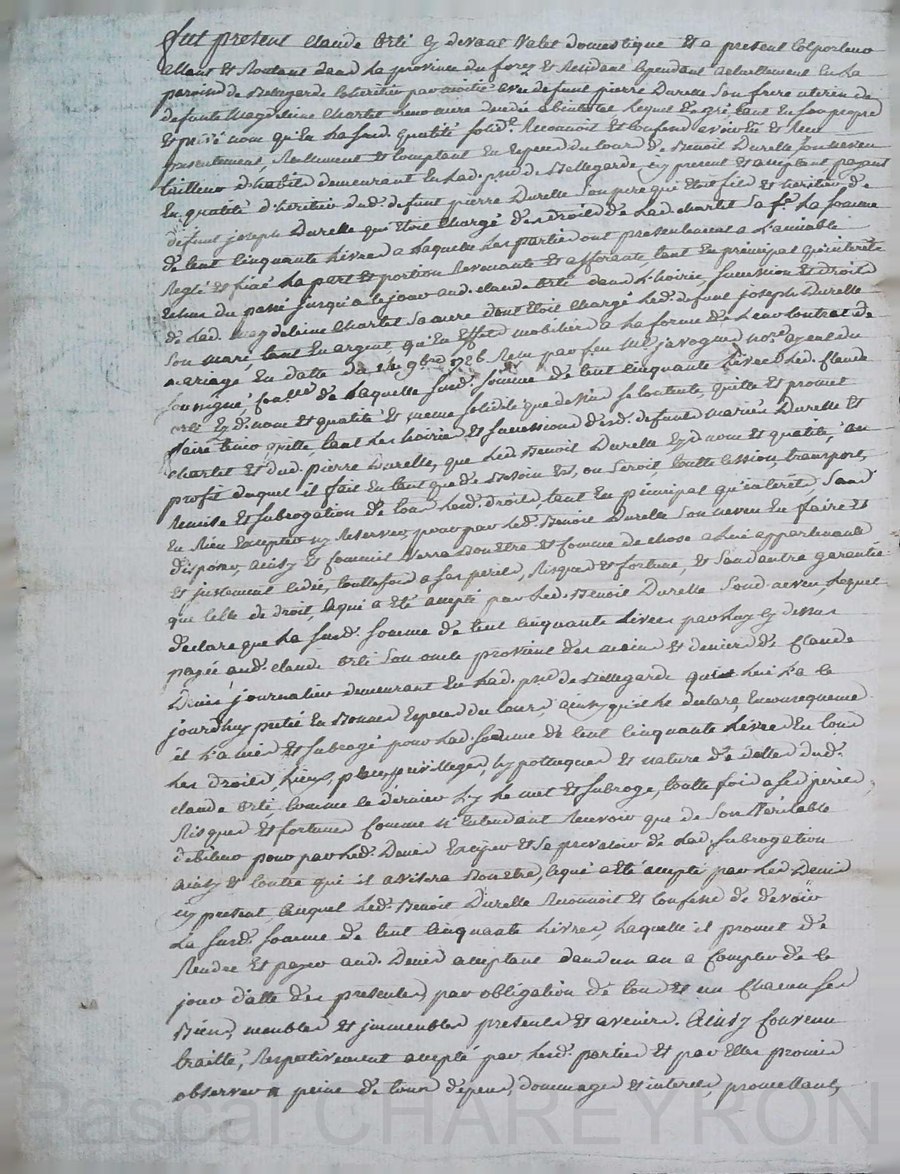 fut present Claude Orli cy devant valet domestique et a present Colporteur
allant et Roulant dans la province du forez et Residant cependant actuellement en la
paroisse de Bellegarde heritier par moitié avec defunt pierre Durelle son frere uterin de
defunte Magdelaine Chartet leur mere decedée abintestat lequel de gré, tant en son propre
et privé nom qu'en la susd. qualité solid.e Reconnoit et confesse avoir eu et Receu
presentement, Reellement et comptant en especes du cours de Benoit Durelle son neveu
tailleur d'habits demeurant en lad. psse de Bellegarde cy present et acceptant payant
En qualité d'heritier dud. defunt pierre Durelle son pere qui etoit fils et heritier de
defunt joseph Durelle qui etoit chargé des droits de lad. chartet sa fe. la somme
de cent cinquante livres a laquelle les parties ont presentement a l'amiable
Reglé et fixé la part et portion Revenante et afferante tant en principal qu'interets
echus du passé jusqu'à ce jour aud. claude Orli dans l'hoirie, succession et droits
de lad. Magdeleine Chartet sa mere dont etoit chargé led. defunt joseph Durelle
son mari, tant en argent, qu'en effets mobiliers a la forme de leur contrat de
mariage en datte du 9bre 1726 Receu par feu Me javogue nore. ayeul du
soussigné, de laquelle susd. somme de cent cinquante livres led. claude
Orli ez d. nom et qualité et meme solidité que dessus se contente, quitte et promet
faire tenir quitte, tant les hoiries et successions desd. defunts mariés Durelle et
chartet et dud. pierre Durelle, que led. Benoit Durelle ez d. nom et qualité, au
profit duquel il fait en tant que de besoin est, ou seroit toutte cession, transport,
Remise et subrogation de tous lesd. droits, tant en principal qu'interets, sans
en Rien excepter ny Reserver, pour par led. Benoit Durelle son neveu en faire et
disposer, ainsy et comme il verra bon etre et comme de chose a lui appartenante
et justement cedée, touttefois a ses perils, Risques et fortune, et sans autre garantie
que celle de droit, ce qui a eté accepté par led. Benoit Durelle sond. neveu, lequel
declare que la susd. somme de cent cinquante livres par luy cy dessus
payée aud. claude Orli son oncle provient des mains et deniers de Claude
Denis journalier demeurant en lad. psse de Bellegarde qui les lui a ce
jourdhuy preté en bonnes especes du cours, ainsy qu'il le declare, en consequence
il l'a mis et subrogé pour lad. somme de cent cinquante livres en tous
les droits, lieux, place, privilleges, hypotheques et nature de dettes dud.
claude Orli, comme ce dernier l'y met et subroge, toutte fois a ses perils,
Risques et fortunes comme n'entendant Recevoir que de son veritable
debiteur pour par led. Denis exciper et se prevaloir de lad. subrogation
ainsy et contre qui il avisera bon etre, ce qui a eté accepté par led. Denis
cy present, auquel led. Benoit Durelle Reconnoit et confesse de devoir
la susd. somme de cent cinquante livres, laquelle il promet de
Rendre et payer aud. Denis acceptant dans un an a compter de ce
jour datte des presentes, par obligation de tous et un chacun ses
Biens, meubles et jmmeubles presents et avenirs. Ainsy convenu
traitté, Respectivement accepté par lesd. parties et par elles promis
observer a peine de tous depens, dommages et interets, promettant,
Pascal CHAREYRON